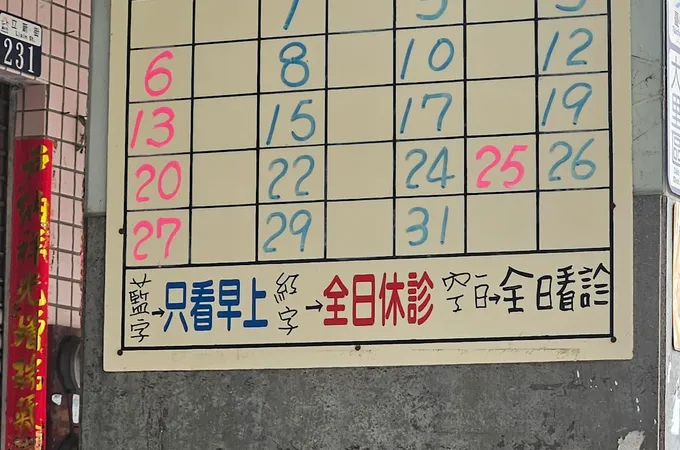 231
7 5 5
6 8 10 12
13 15 17 19
20 22 24 25 26
27 29 31
藍字→只看早上 紅字→全日休診 空白→全日看診
大里區